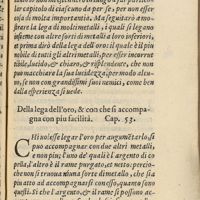 le capitolo di ciascuno da per se, per non esser
cosa di molta importanti. Ma seguitarò a tro-
la lega di molti metalli, i quali si legano
insieme con altre sorti di metalli a loro inferiori, &
prima dirò della lega dell'oro il quale è il più
nobile di tutti gli altri metalli, per esser incorrut
lucido, & chiaro, & risplendente, che non
può macchiare la sua lucidezza, per modo alcu-
no, se non con grandissimi suoi nemici, come ben
dalla esperienza si uede.
Della lega dell'oro, & con che si accompa-
gna con piu facilità. Cap. 53.
CHi uolesse legar l'oro per argumétarlo, si
può accompagnar con due altri metalli,
e non piu; l'uno de' quali è l'argento di co
pella, l'altro è il rame purgato, et netto, per-
che non si truoua niuna sorte di metallo, che sia
piu atto ad accompagnarsi con essollo, quanto è
questi, cioè argento, & rame,